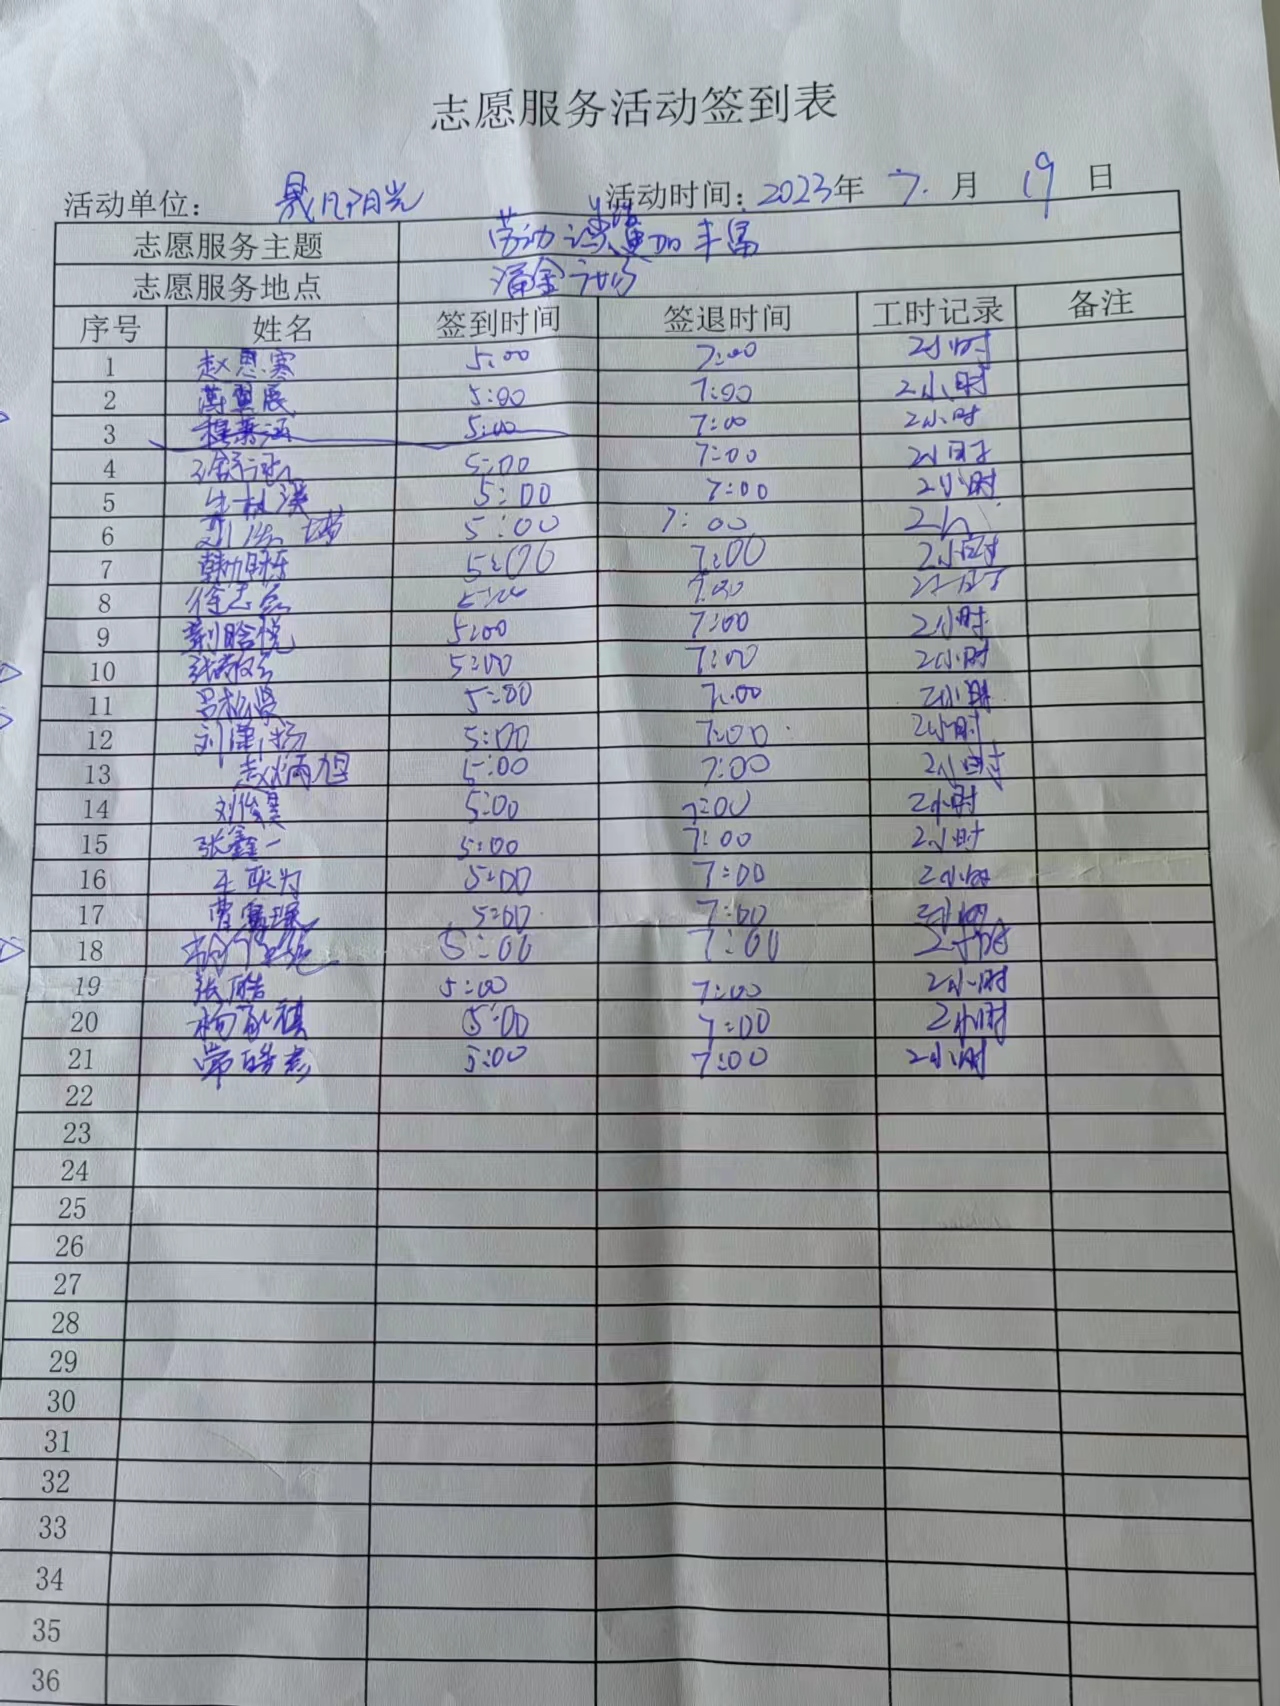 志愿服务活动签到表
活动单位: 晟凡阳光 活动时间: 2023年 7. 月 19 日
志愿服务主题 劳动 更加丰富
志愿服务地点 涌金
序号 姓名 签到时间 签退时间 工时记录 备注
1 赵恩寒 5:00 7:00 2小时
2 展 5:00 7:00 2小时
3 程 涵 5:00 7:00 2小时
4 5:00 7:00 2小时
5 5:00 7:00 2小时
6 刘 5:00 7:00 2小
7 韩 5:00 7:00 2小时
8 徐志 5:00 7:00 2小时
9 荆晗悦 5:00 7:00 2小时
10 张 5:00 7:00 2小时
11 吕松贤 5:00 7:00 2小时
12 刘 扬 5:00 7:00 2小时
13 赵炳旭 5:00 7:00 2小时
14 刘俊昊 5:00 7:00 2小时
15 张鑫一 5:00 7:00 2小时
16 王 为 5:00 7:00 2小时
17 曹 5:00 7:00 2小时
18 5:00 7:00 2小时
19 张皓 5:00 7:00 2小时
20 杨 祺 5:00 7:00 2小时
21 常皓志 5:00 7:00 2小时
22
23
24
25
26
27
28
29
30
31
32
33
34
35
36